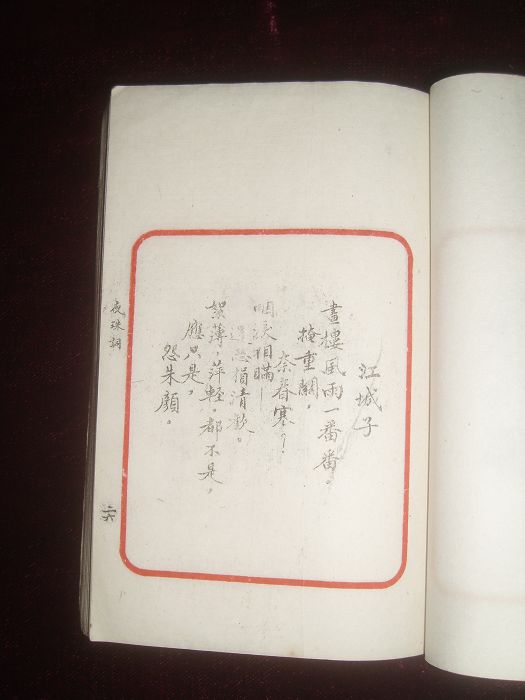 江城子
畫樓風雨一番番。
掩重關，
奈春寒？！
咽淚相瞞—
還恐損清歡。
絮薄，萍輕，都不是，
應只是，
怨朱顏。
夜珠詞
二六